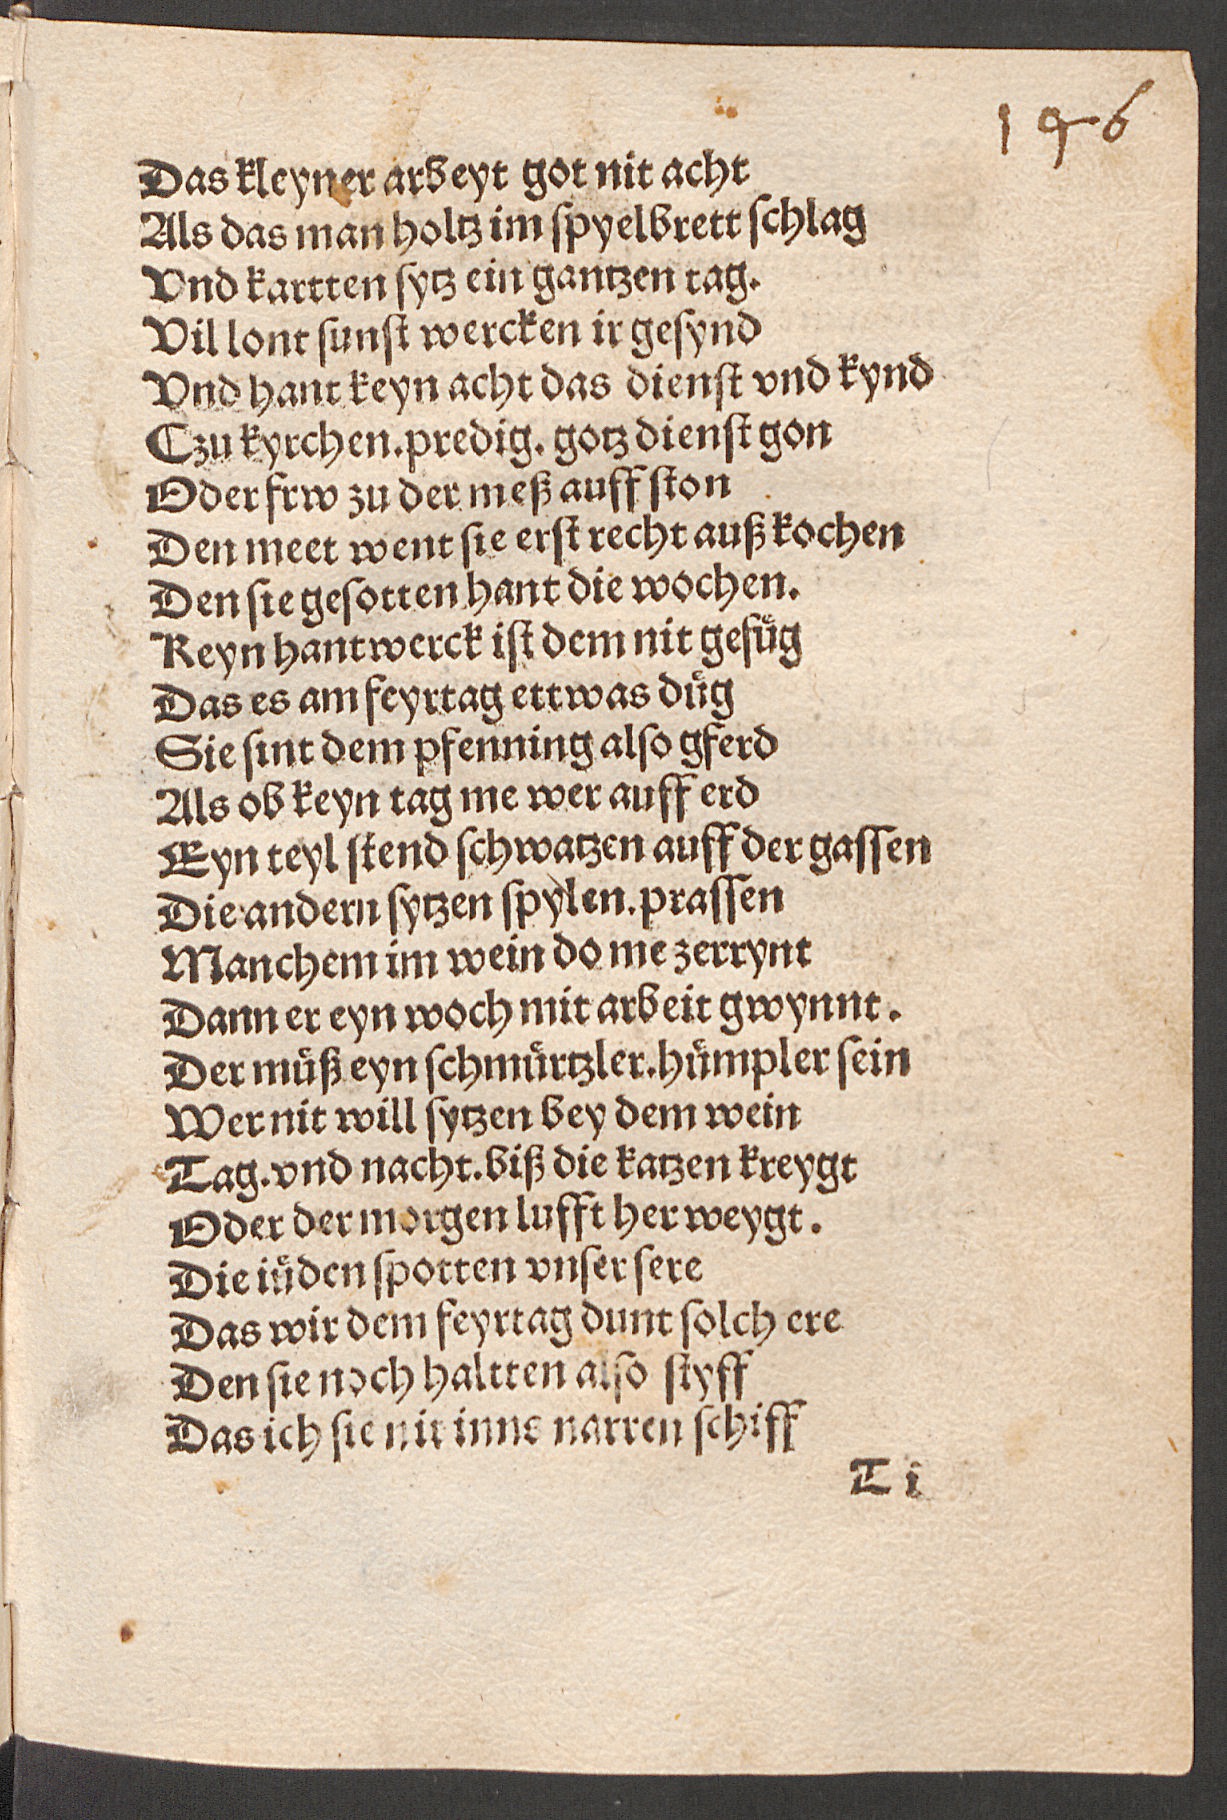 196
Das kleyner arbeyt got nit acht
Als das man holtz im spyelbrett schlag
Vnd kartten sytz ein gantzen tag.
Vil lont sunst wercken ir gesynd
Vnd hant keyn acht das dienst vnd kynd
Czu kyrchen. predig. gotz dienst gon
Oder frw zu der meß auff ston
Den meet went sie erst recht auß kochen
Den sie gesotten hant die wochen.
Keyn hantwerck ist dem nit gefüg
Das es am feyrtag ettwas düg
Sie sint dem pfenning also gferd
Als ob keyn tag me wer auff erd
Eyn teyl stend schwatzen auff der gassen
Die andern sytzen spylen. prassen
Manchem im wein do me zerrynt
Dann er eyn woch mit arbeit gwynnt.
Der müß eyn schmürtzler. hümpler sein
Wer nit will sytzen bey dem wein
Tag. vnd nacht. biß die katzen kreygt
Oder der morgen lufft her weygt.
Die iüden spotten vnser sere
Das wir dem feyrtag dunt solch ere
Den sie noch haltten also styff
Das ich sie nit inns narren schiff
T i